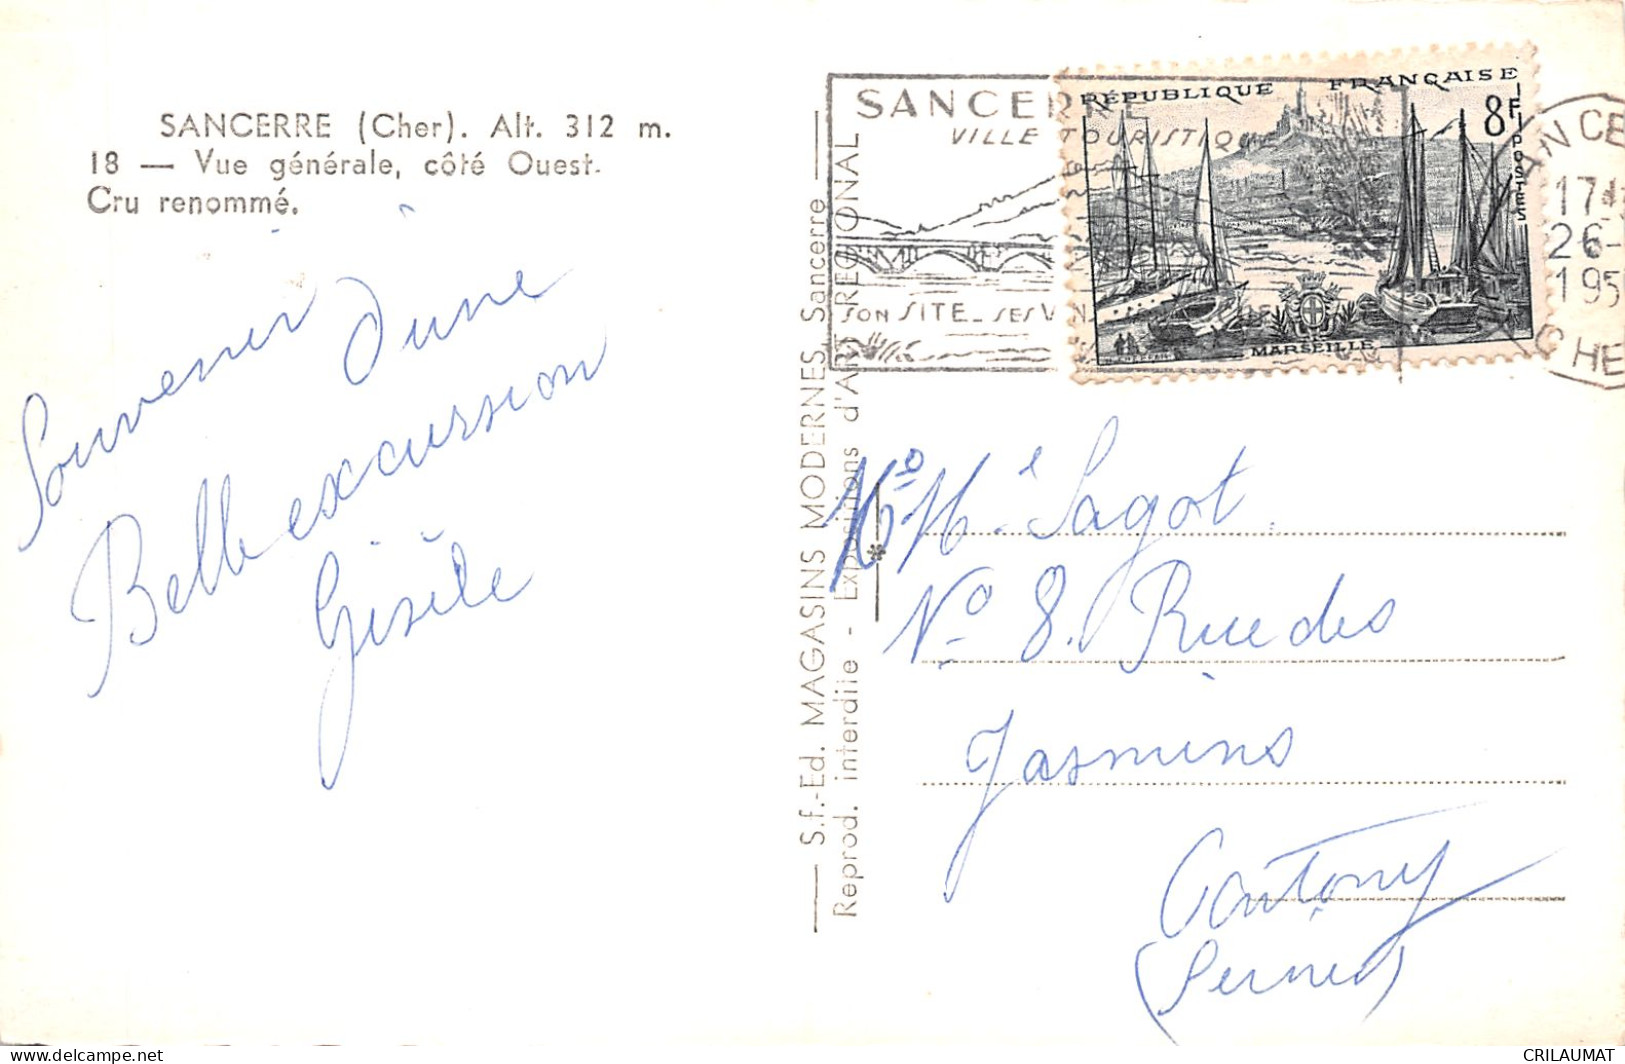 SANCERRE (Cher). Alt. 312 m.
18 — Vue générale, côté Ouest.
Cru renommé.
Souvenir d'une
Belle excursion
Gisèle
S.F.-Ed. MAGASINS MODERNES, Sancerre
Reprod. interdite - Expositions d'ART REGIONAL
SANCERRE
VILLE TOURISTIQUE
SON SITE - SES VINS
RÉPUBLIQUE FRANÇAISE
8F
POSTES
MARSEILLE
SANCE
17
26-
195
CHE
Sagot
No 8. Rue des
Jasmins
Antony
(Seine)
delcampe.net
CRILAUMAT